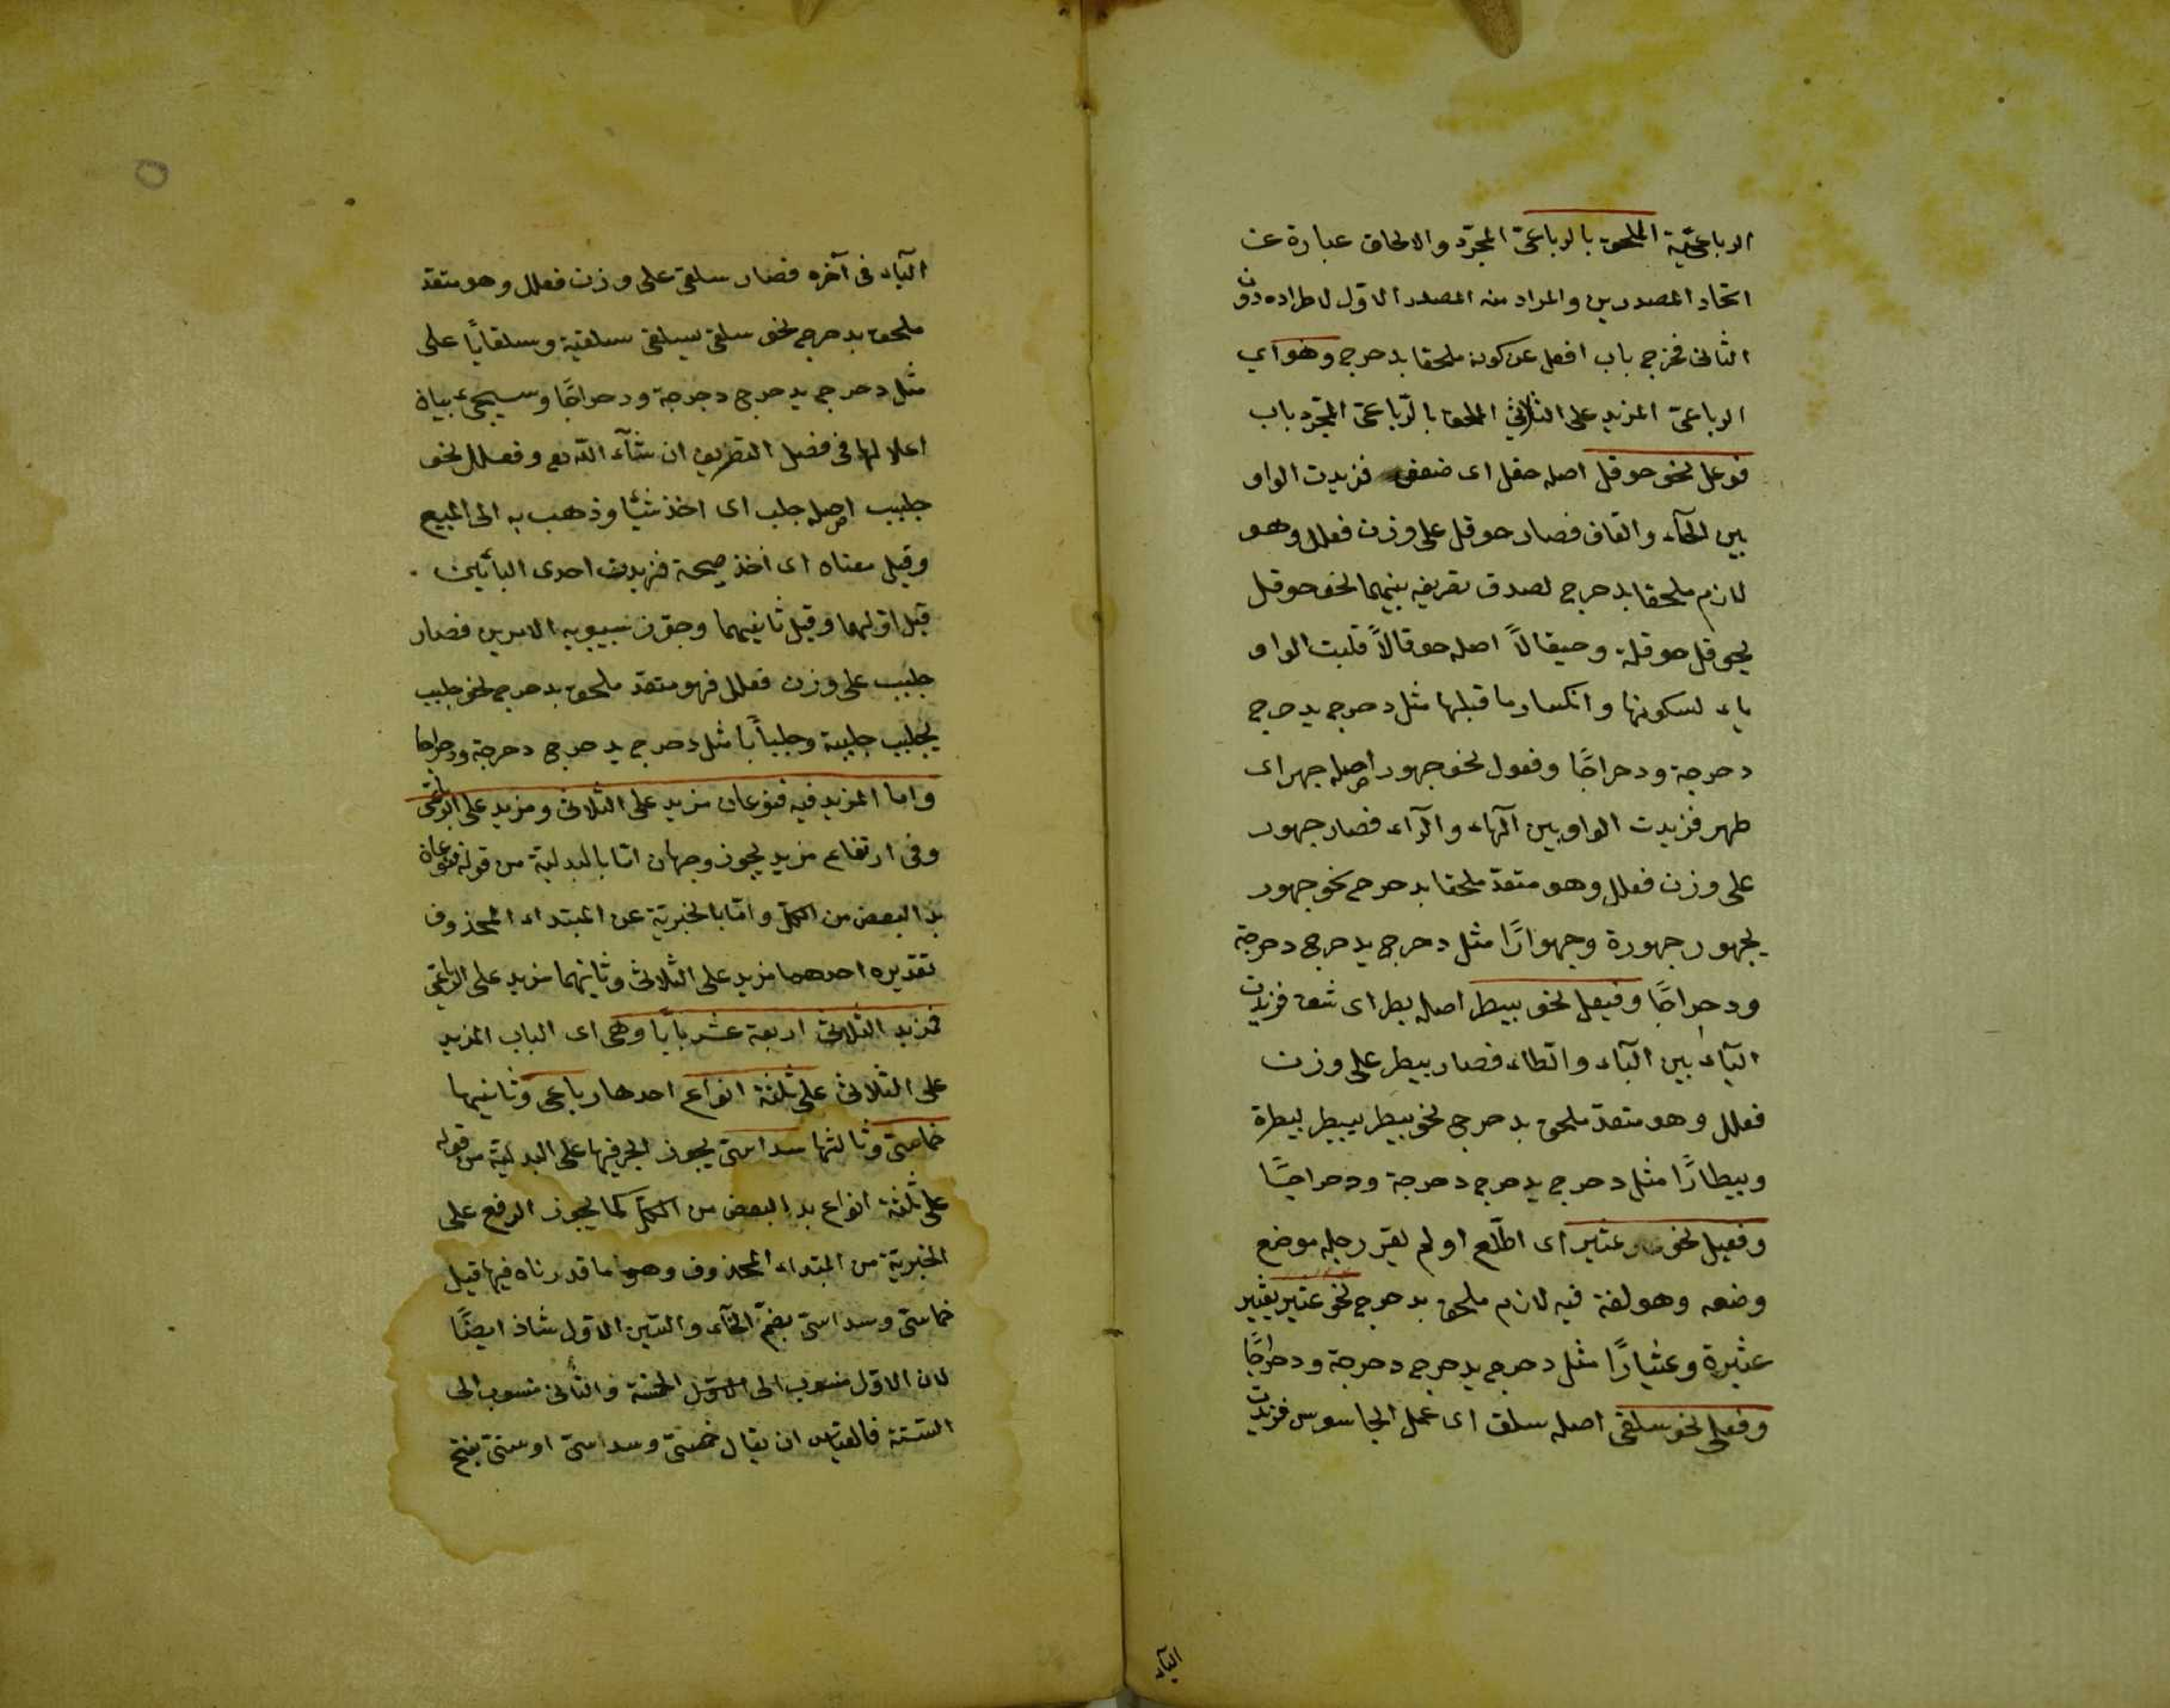 الرباعيّة الملحق بالرباعىّ المجرّد والالحاق عبارة عن
اتحاد المصدرين والمراد منه المصدر الاوّل لاطراده دون
الثانى فخرج باب افعل عن كونه ملحقا بدحرج وهو اى
الرباعىّ المزيد على الثلاثىّ الملحق بالرّباعىّ المجرّد باب
فوعل نحو حوقل اصله حقل اى ضعف فزيدت الواو
بين الحآء والقاف فصار حوقل على وزن فعلل وهو
لازم ملحقا بدحرج لصدق تعريفه بينهما نحو حوقل
يحوقل حوقلة وحيقالاً اصله حوقالاً قلبت الواو
ياء لسكونها وانكسار ما قبلها مثل دحرج يدحرج
دحرجة ودحراجًا وفعول نحو جهور اصله جهر اى
ظهر فزيدت الواو بين الهآء والرآء فصار جهور
على وزن فعلل وهو متعدّ ملحقا بدحرج نحو جهور
يجهور جهورة وجهوارًا مثل دحرج يدحرج دحرجة
ودحراجًا وفيعل نحو بيطر اصله بطر اى شقّ فزيدت
اليآء بين البآء والطاء فصار بيطر على وزن
فعلل وهو متعدّ ملحق بدحرج نحو بيطر يبيطر بيطرة
وبيطارًا مثل دحرج يدحرج دحرجة ودحراجًا
وفعيل نحو عثير اى اطّلع او لم يقر رجله موضع
وضعه وهو لغة فيه لازم ملحق بدحرج نحو عثير يعثير
عثيرة وعثيارًا مثل دحرج يدحرج دحرجة ودحراجًا
وفعلى نحو سلقى اصله سلق اى عمل الجاسوس فزيدت
اليآء
اليآء فى آخره فصار سلقى على وزن فعلل وهو متعدّ
ملحق بدحرج نحو سلقى يسلقى سلقية وسلقايًا على
مثل دحرج يدحرج دحرجة ودحراجًا وسيجىء بيان
اعلالها فى فصل التصريف ان شآء اللّه تع وفعلل نحو
جلبب اصله جلب اى اخذ شيئا وذهب به الى المبيع
وقيل معناه اى اخذ صيحة فزيدت احدى البائين
قيل اوّلهما وقيل ثانيهما وجوّز سيبويه الامرين فصار
جلبب على وزن فعلل فهو متعدّ ملحق بدحرج نحو جلبب
يجلبب جلببة وجلبابًا مثل دحرج يدحرج دحرجة ودحراجا
واما المزيد فيه فنوعان مزيد على الثلاثى ومزيد على الرباعىّ
وفى ارتفاع مزيد يجوز وجهان امّا بالبدلية من قوله فنوعان
بدل البعض من الكلّ وامّا بالخبريّة عن المبتداء المحذوف
تقديره احدهما مزيد على الثلاثى وثانيهما مزيد على الرباعىّ
فمزيد الثلاثىّ اربعة عشر بابًا وهى اى الباب المزيد
على الثلاثى على ثلثة انواع احدها رباعى وثانيها
خماسىّ وثالثها سداسىّ يجوز الجر فيها على البدليّة من قوله
على ثلثة انواع بدل البعض من الكلّ كما يجوز الرفع على
الخبريّة من المبتداء المحذوف وهو ما قدرناه فيها قيل
خماسىّ وسداسىّ بضمّ الخآء والسّين الاوّل شاذ ايضًا
لان الاوّل منسوب الى الخمسة والثانى منسوب الى
الستّة فالقياس ان يقال خمسىّ وسداسىّ او ستىّ بفتح